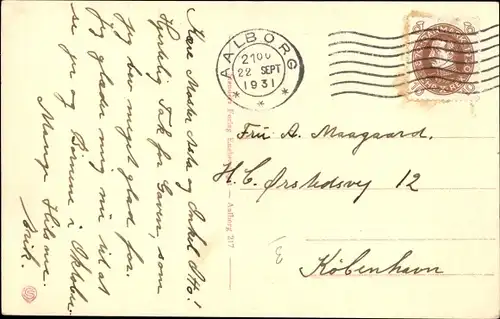 Kære Moster Asta og Onkel Otto!
Hjertelig Tak for Gaven, som
jeg blev meget glad for.
Jeg glæder mig nu til at
se jer og Börnene i Oktober.
Mange Hilsner
AALBORG
2100
22 SEPT
1931
Fru A. Maagaard.
H.C. Ørstedsvej 12
København
Aalborg 217